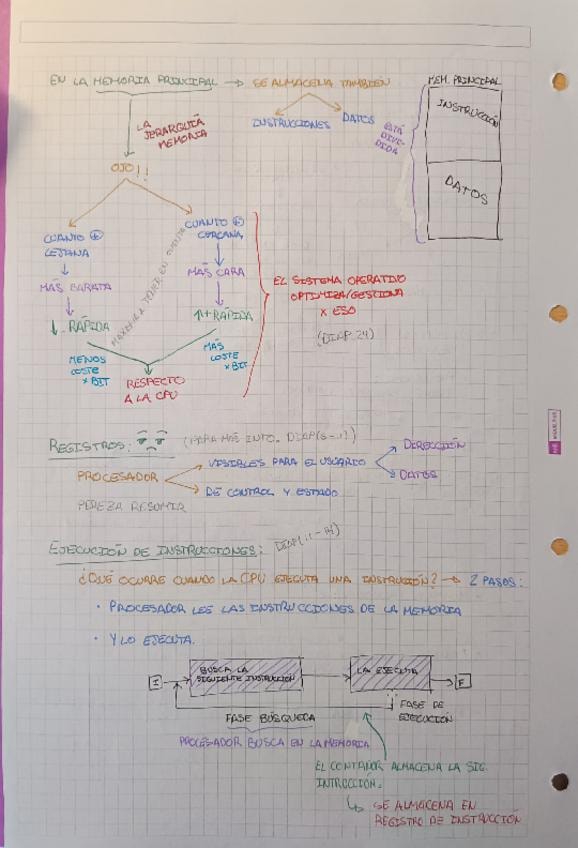 EN LA MEMORIA PRINCIPAL → SE ALMACENA TAMBIÉN
INSTRUCCIONES DATOS
MEM. PRINCIPAL
INSTRUCCIÓN
DATOS
ESTÁ DIVIDIDA
LA
JERARQUÍA
MEMORIA
OJO!!
CUANTO +
LEJANA
MÁS BARATA
↓ - RÁPIDA
MENOS
COSTE
x BIT
CUANTO +
CERCANA
MÁS CARA
↑ + RÁPIDA
MÁS
COSTE
x BIT
A TENER EN CUENTA
RESPECTO
A LA CPU
EL SISTEMA OPERATIVO
OPTIMIZA/GESTIONA
x ESO
(DIAP. 24)
REGISTROS: (PARA MÁS INFO. DIAP(6-11)
PROCESADOR
VISIBLES PARA EL USUARIO
DIRECCIÓN
DATOS
DE CONTROL Y ESTADO
PEREZA RESUMIR
EJECUCIÓN DE INSTRUCCIONES:
¿QUÉ OCURRE CUANDO LA CPU EJECUTA UNA INSTRUCCIÓN? → 2 PASOS:
· PROCESADOR LEE LAS INSTRUCCIONES DE LA MEMORIA
· Y LO EJECUTA.
I
BUSCA LA
SIGUIENTE INSTRUCCIÓN
LA EJECUTA
F
FASE BÚSQUEDA
FASE DE
EJECUCIÓN
PROCESADOR BUSCA EN LA MEMORIA
EL CONTADOR ALMACENA LA SIG.
INTRUCCIÓN.
SE ALMACENA EN
REGISTRO DE INSTRUCCIÓN